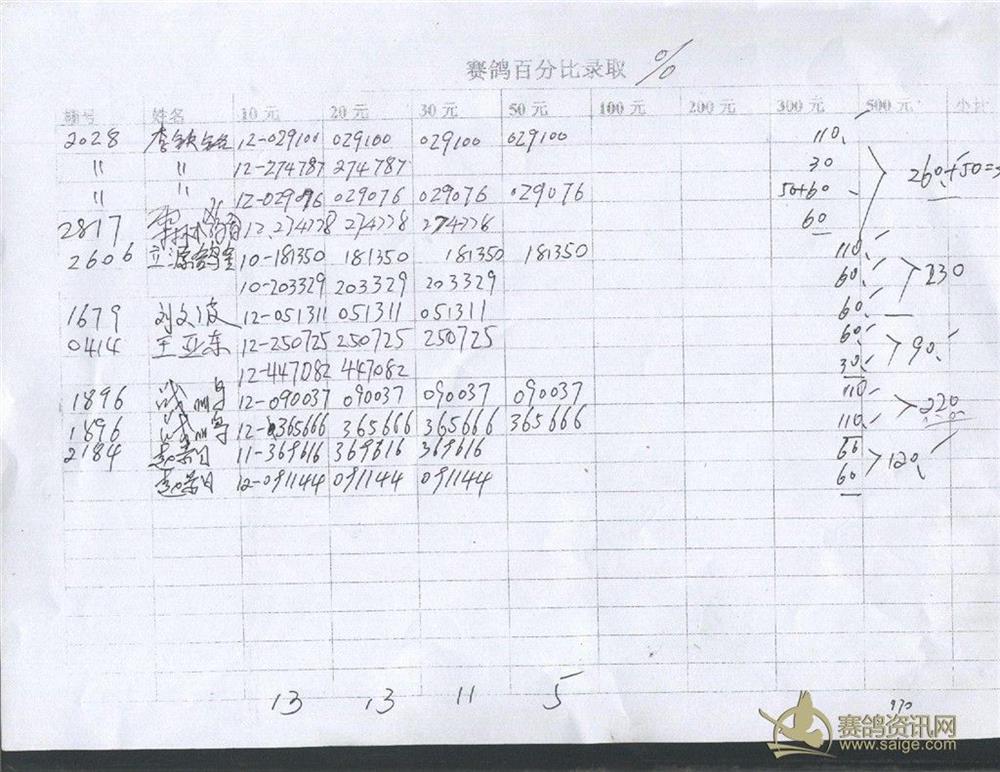 赛鸽百分比录取 %
棚号 姓名 10元 20元 30元 50元 100元 200元 300元 500元 小计
2028 李钦 12-029100 029100 029100 029100 110
" " 12-274787 274787 30
" " 12-029076 029076 029076 029076 50+60 260+50=
2817 12-274778 274778 274778 60
2606 立源鸽舍 10-181350 181350 181350 181350 110
10-203329 203329 203329 60 230
1679 刘文波 12-051311 051311 051311 60
0414 王亚东 12-250725 250725 250725 60 90
12-447082 447082 30
1896 12-090037 090037 090037 090037 110 220
1896 12-365666 365666 365666 365666 110
2184 11-369616 369616 369616 60 120
12-091144 091144 091144 60
13 13 11 5
970
赛鸽资讯网
www.saige.com